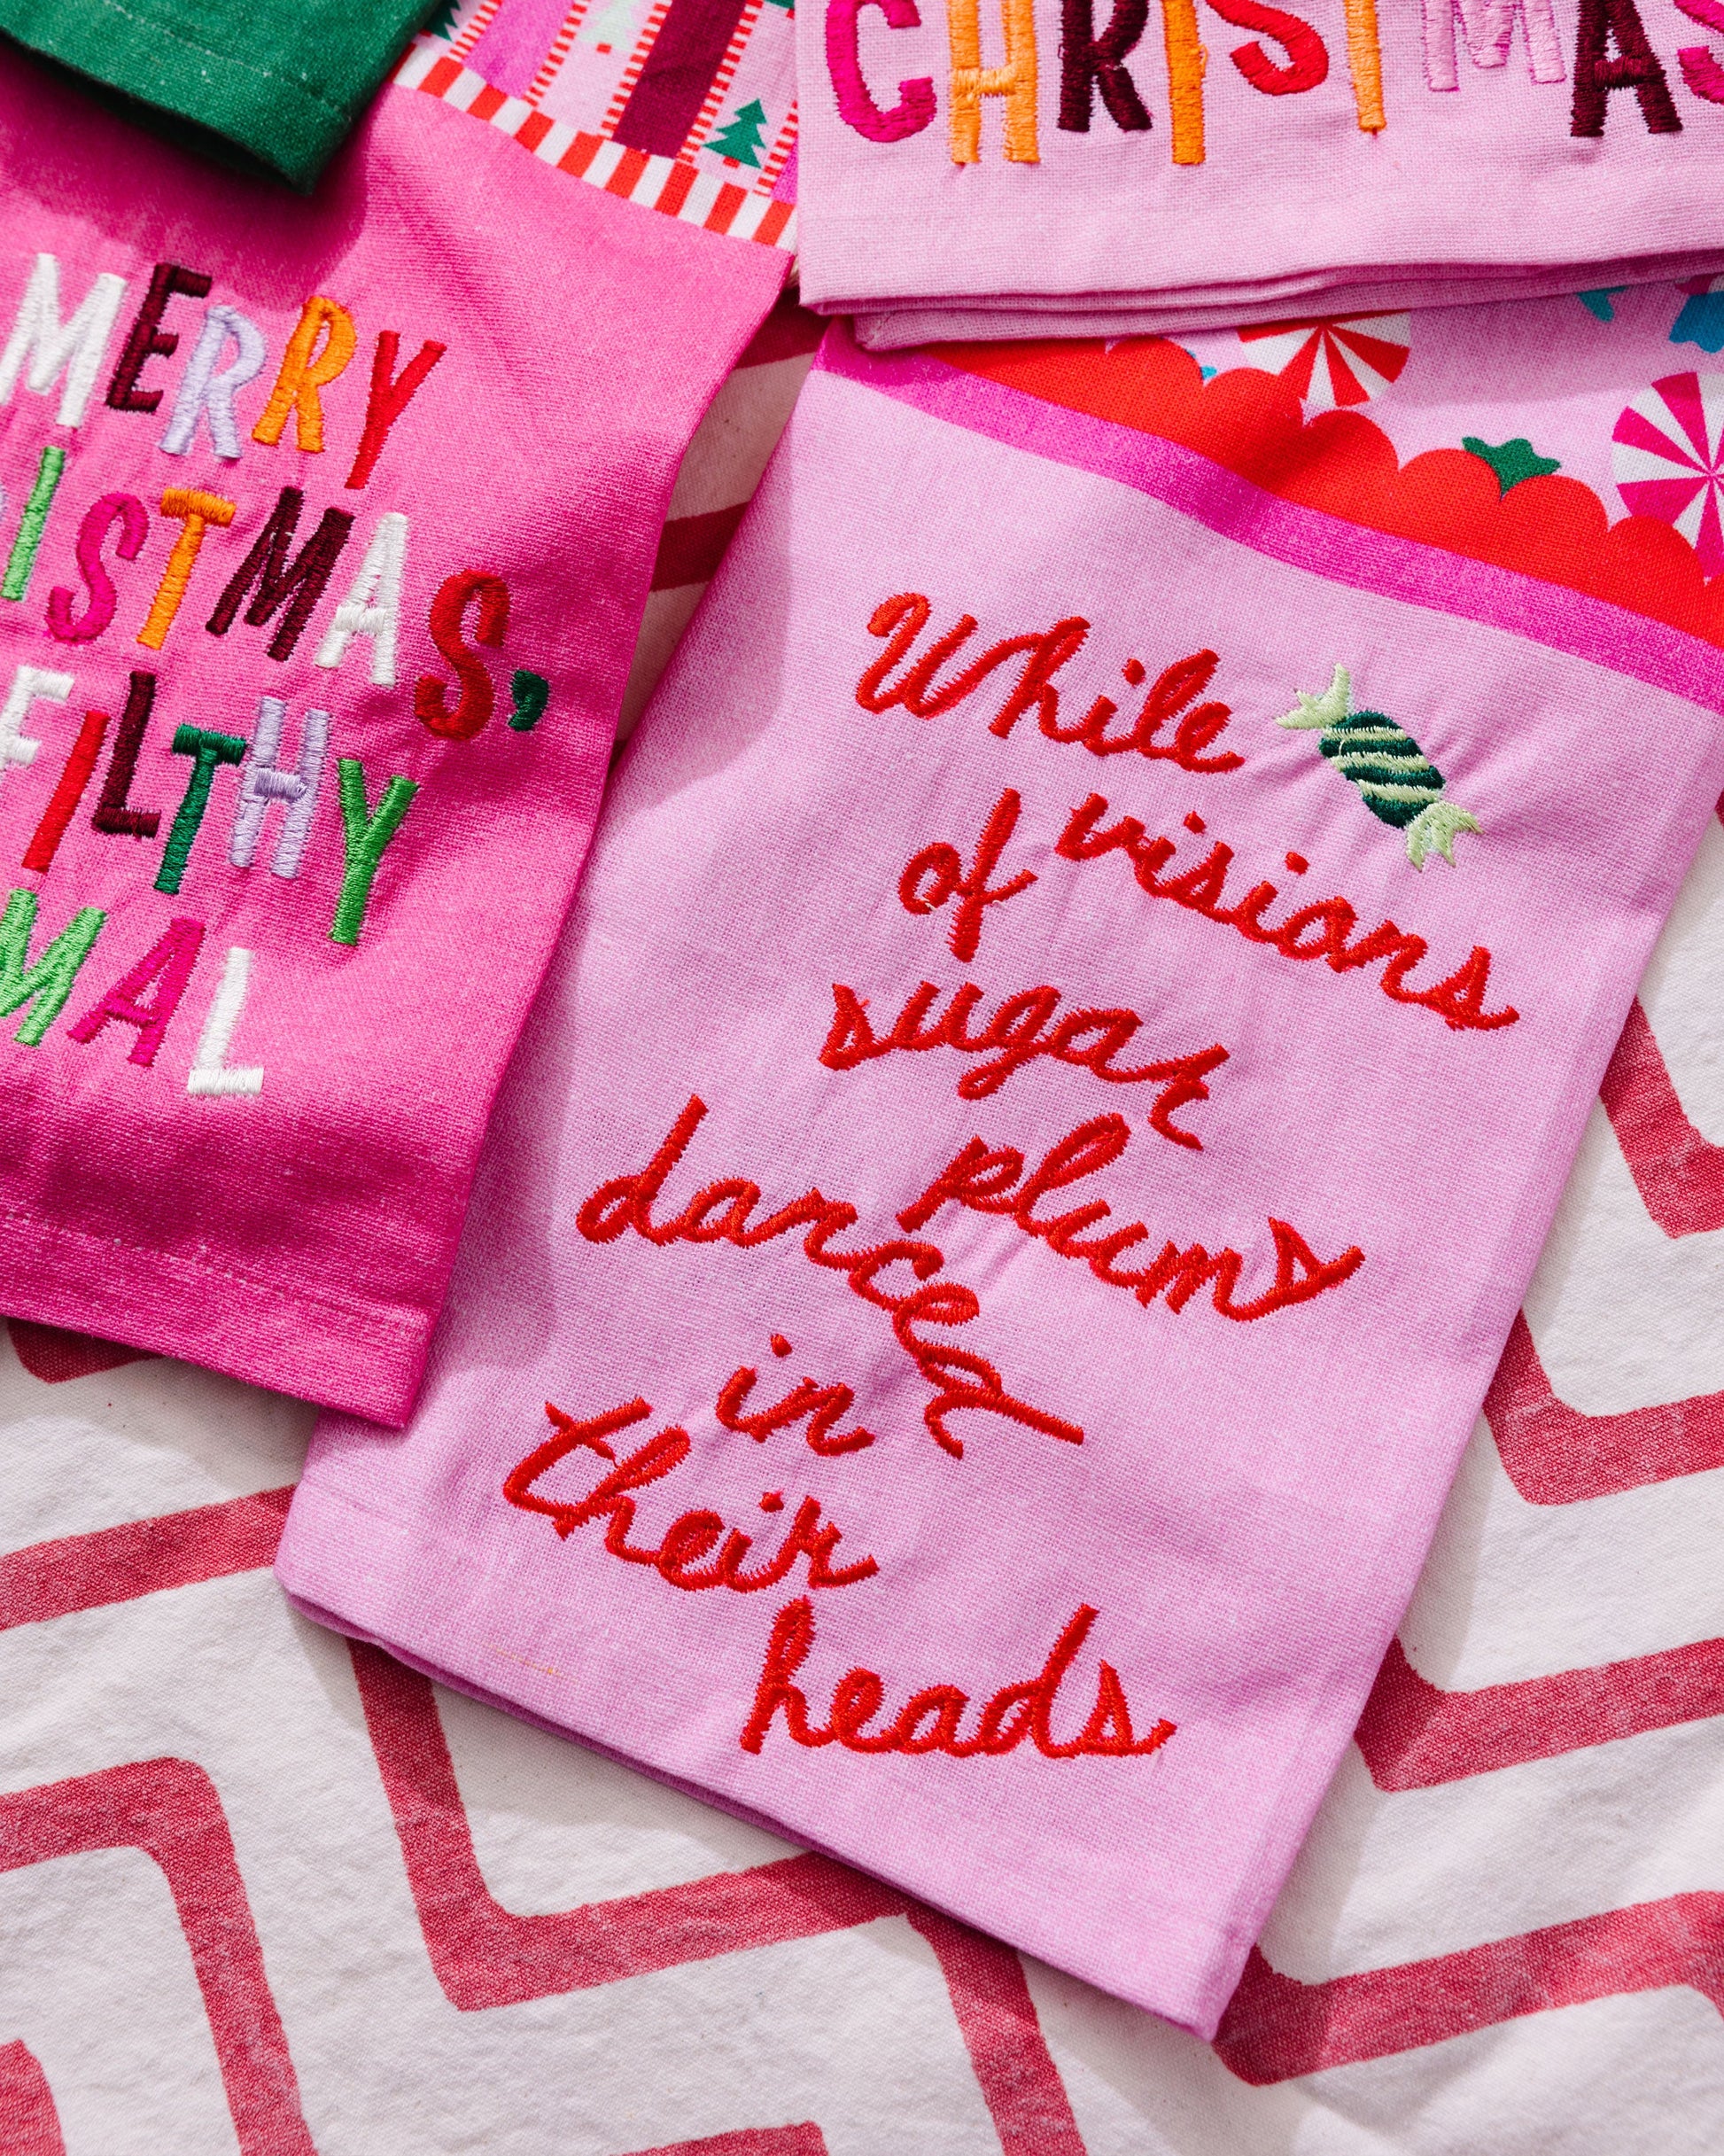 CHRISTMAS
MERRY
ISTMAS,
FILTHY
MAL
While
visions
of
sugar
plums
danced
in
their
heads